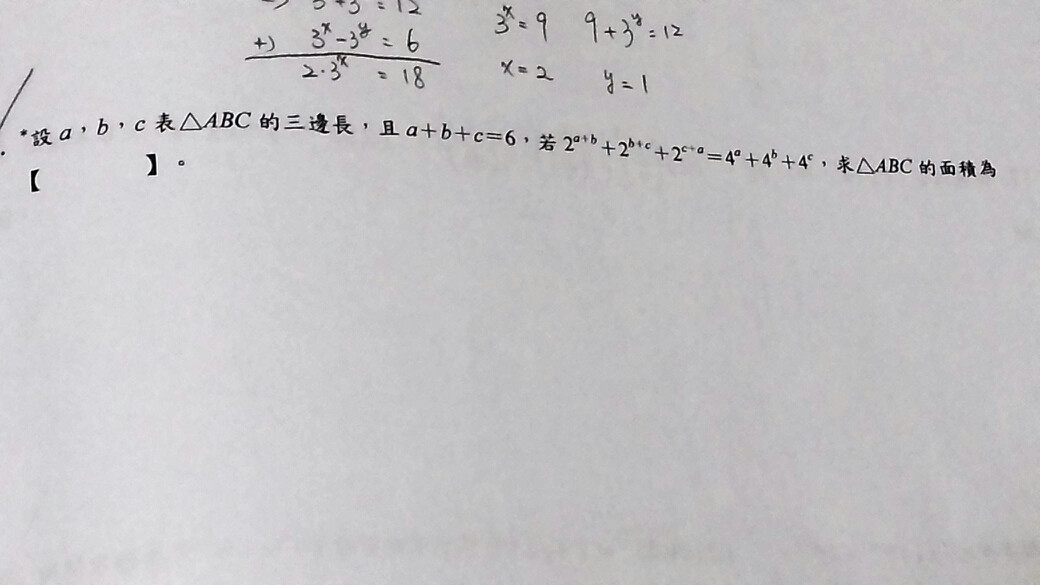 3 + 3 = 12
+) 3^x - 3^y = 6
2·3^x = 18
3^x = 9 9 + 3^y = 12
x = 2 y = 1
*設 a，b，c 表 △ABC 的三邊長，且 a+b+c=6，若 2^{a+b}+2^{b+c}+2^{c+a}=4^a+4^b+4^c，求△ABC 的面積為
【 】。